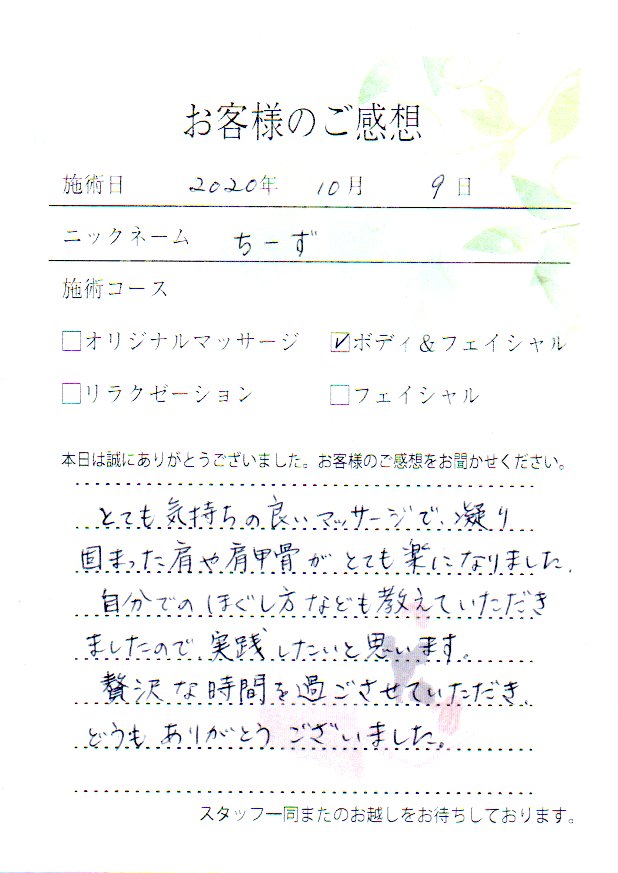 お客様のご感想
施術日 2020年 10月 9日
ニックネーム ちーず
施術コース
□オリジナルマッサージ ☑ボディ&フェイシャル
□リラクゼーション □フェイシャル
本日は誠にありがとうございました。お客様のご感想をお聞かせください。
とても気持ちの良いマッサージで、凝り
固まった肩や肩甲骨がとても楽になりました。
自分でのほぐし方なども教えていただき
ましたので、実践したいと思います。
贅沢な時間を過ごさせていただき、
どうもありがとうございました。
スタッフ一同またのお越しをお待ちしております。